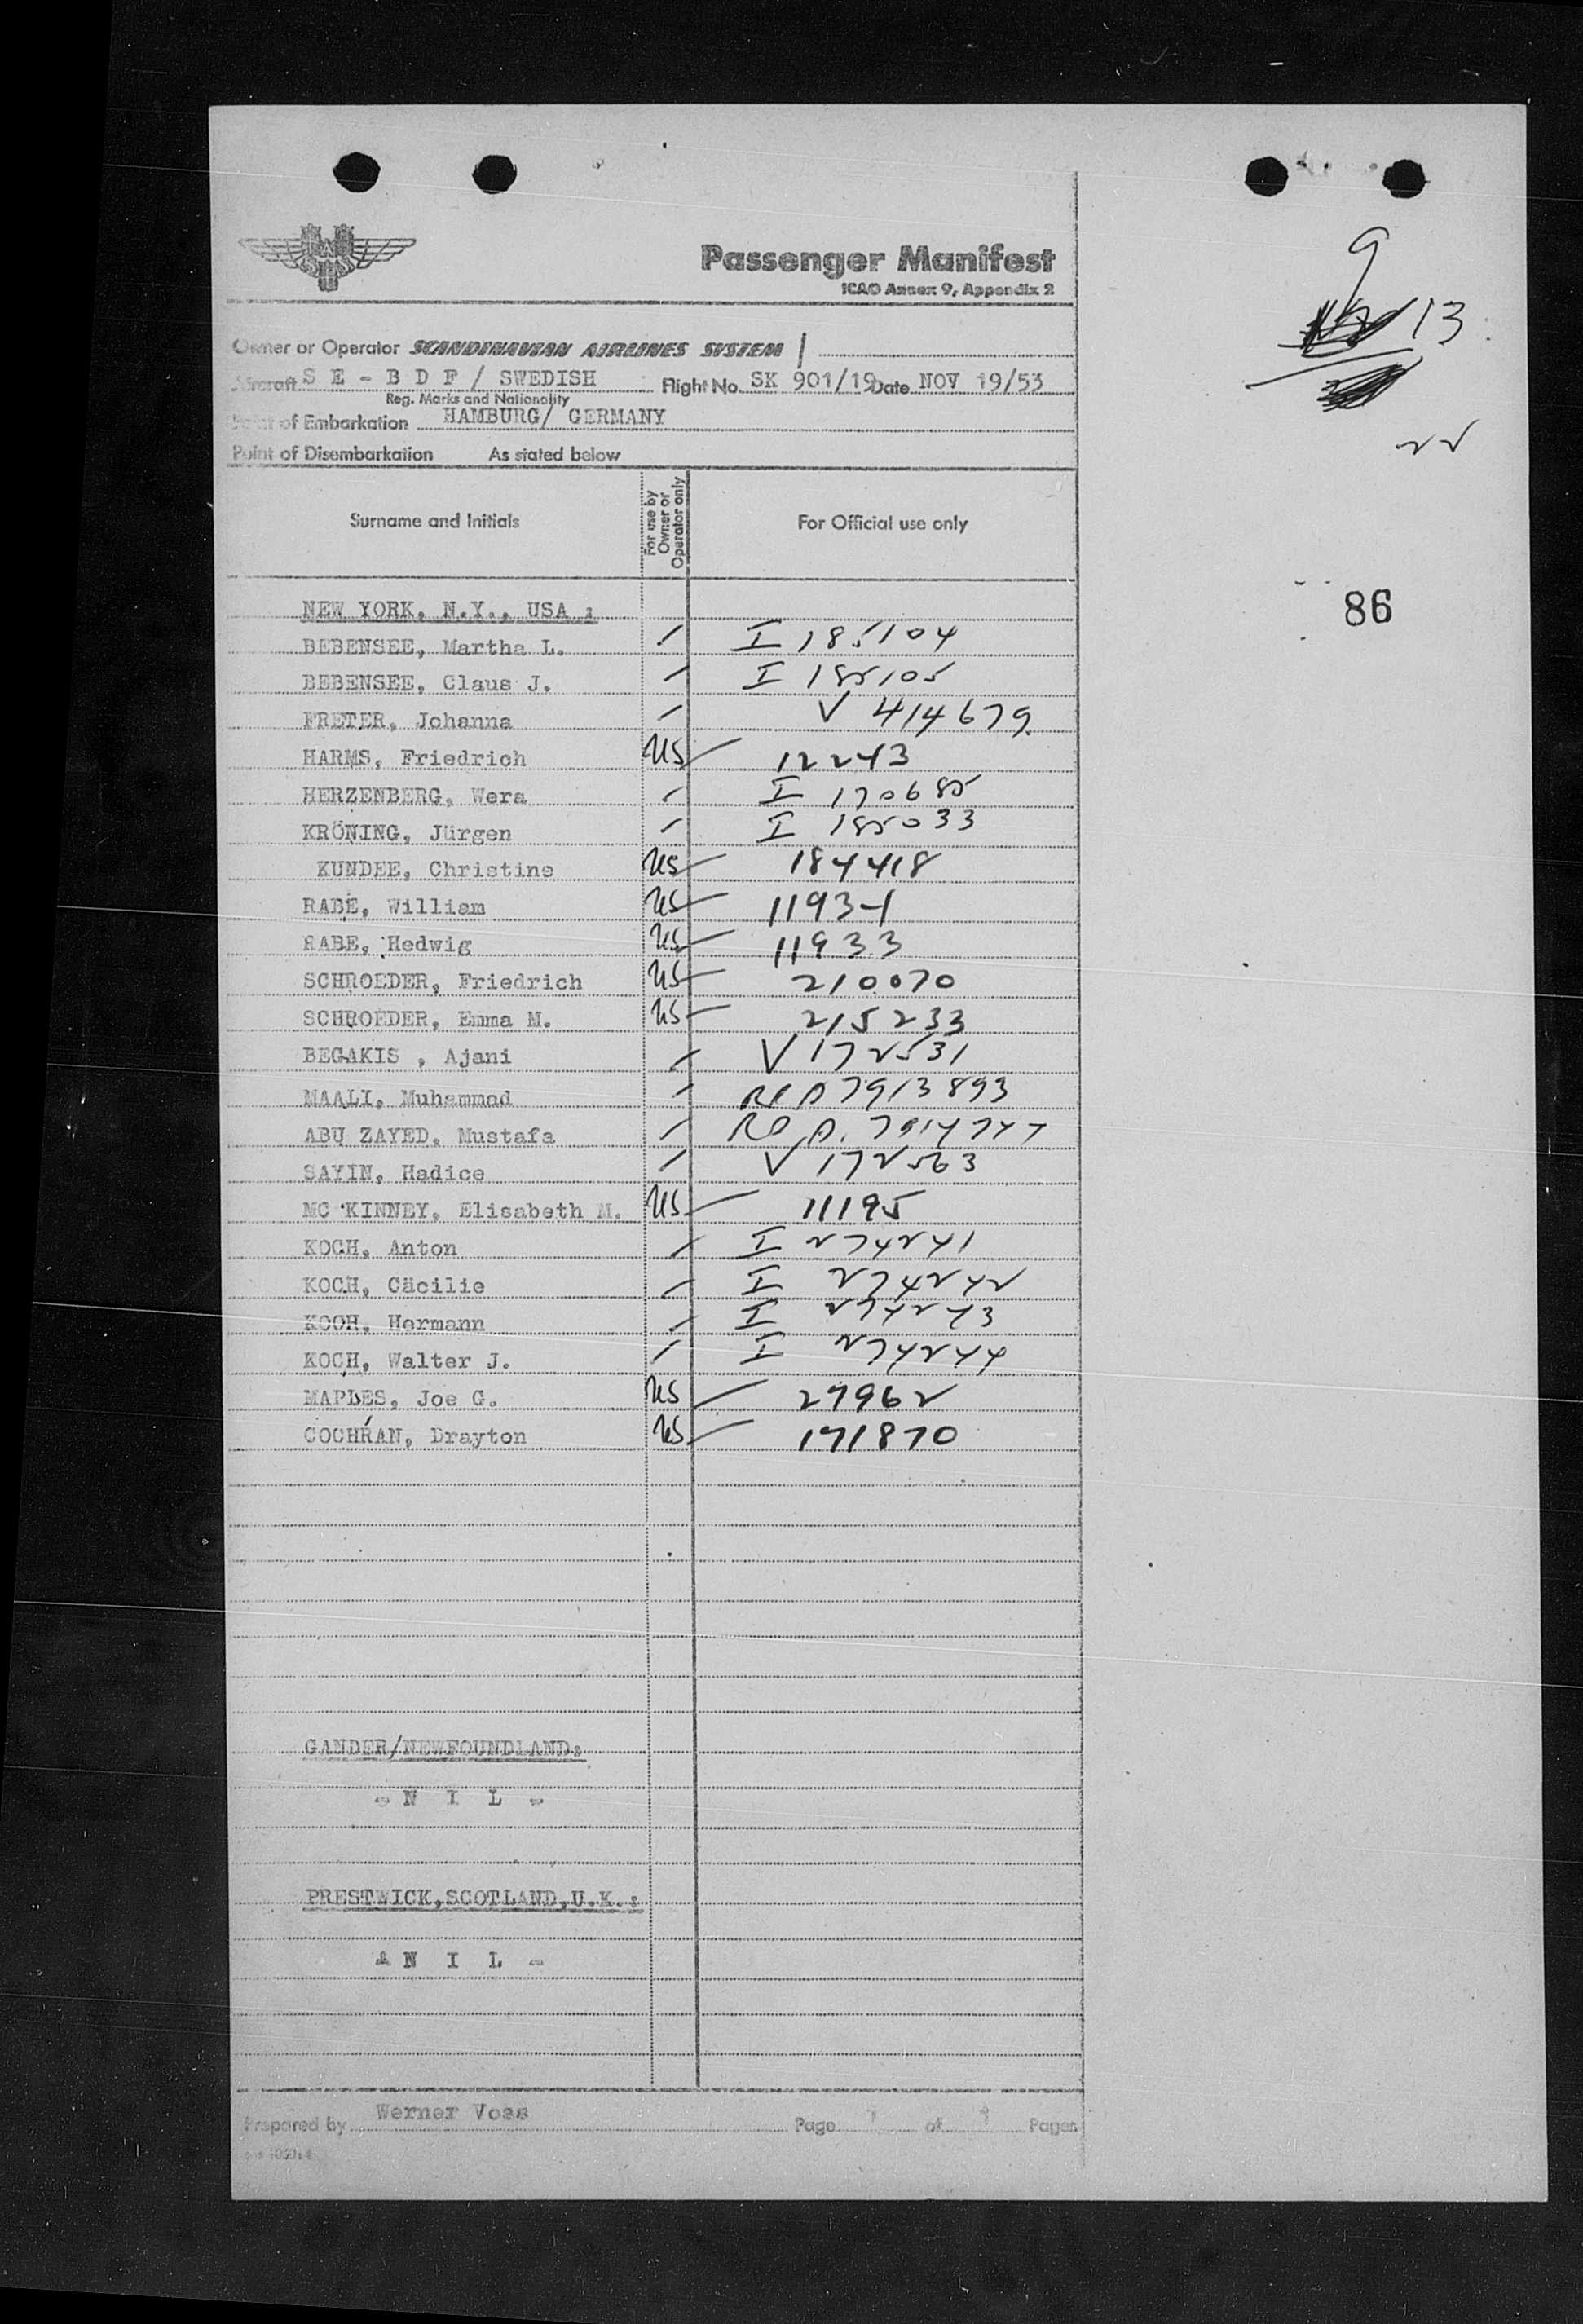 SAS
Passenger Manifest
ICAO Annex 9, Appendix 2
9
13
Owner or Operator SCANDINAVIAN AIRLINES SYSTEM
Aircraft S E - B D F / SWEDISH Flight No. SK 901/19 Date NOV 19/53
Reg. Marks and Nationality
Point of Embarkation HAMBURG/ GERMANY
Point of Disembarkation As stated below
22
Surname and Initials For use by Owner or Operator only For Official use only
86
NEW YORK, N.Y., USA :
BEBENSEE, Martha L. I 185104
BEBENSEE, Claus J. I 185105
FRETER, Johanna V 414679
HARMS, Friedrich US 12243
HERZENBERG, Wera I 170685
KRÖNING, Jürgen I 185033
KUNDEE, Christine US 184418
RABE, William US 11934
RABE, Hedwig US 11933
SCHROEDER, Friedrich US 210070
SCHROEDER, Emma M. US 215233
BEGAKIS , Ajani V 172531
MAALI, Muhammad 7913893
ABU ZAYED, Mustafa
SAYIN, Hadice V 172563
MC KINNEY, Elisabeth M. US 11195
KOCH, Anton I 274241
KOCH, Cäcilie I 274242
KOCH, Hermann I 274243
KOCH, Walter J. I 274244
MAPLES, Joe G. US 27962
COCHRAN, Drayton US 171870
GANDER/NEWFOUNDLAND:
- N I L -
PRESTWICK,SCOTLAND,U.K.:
- N I L -
Prepared by Werner Voss Page of Pages